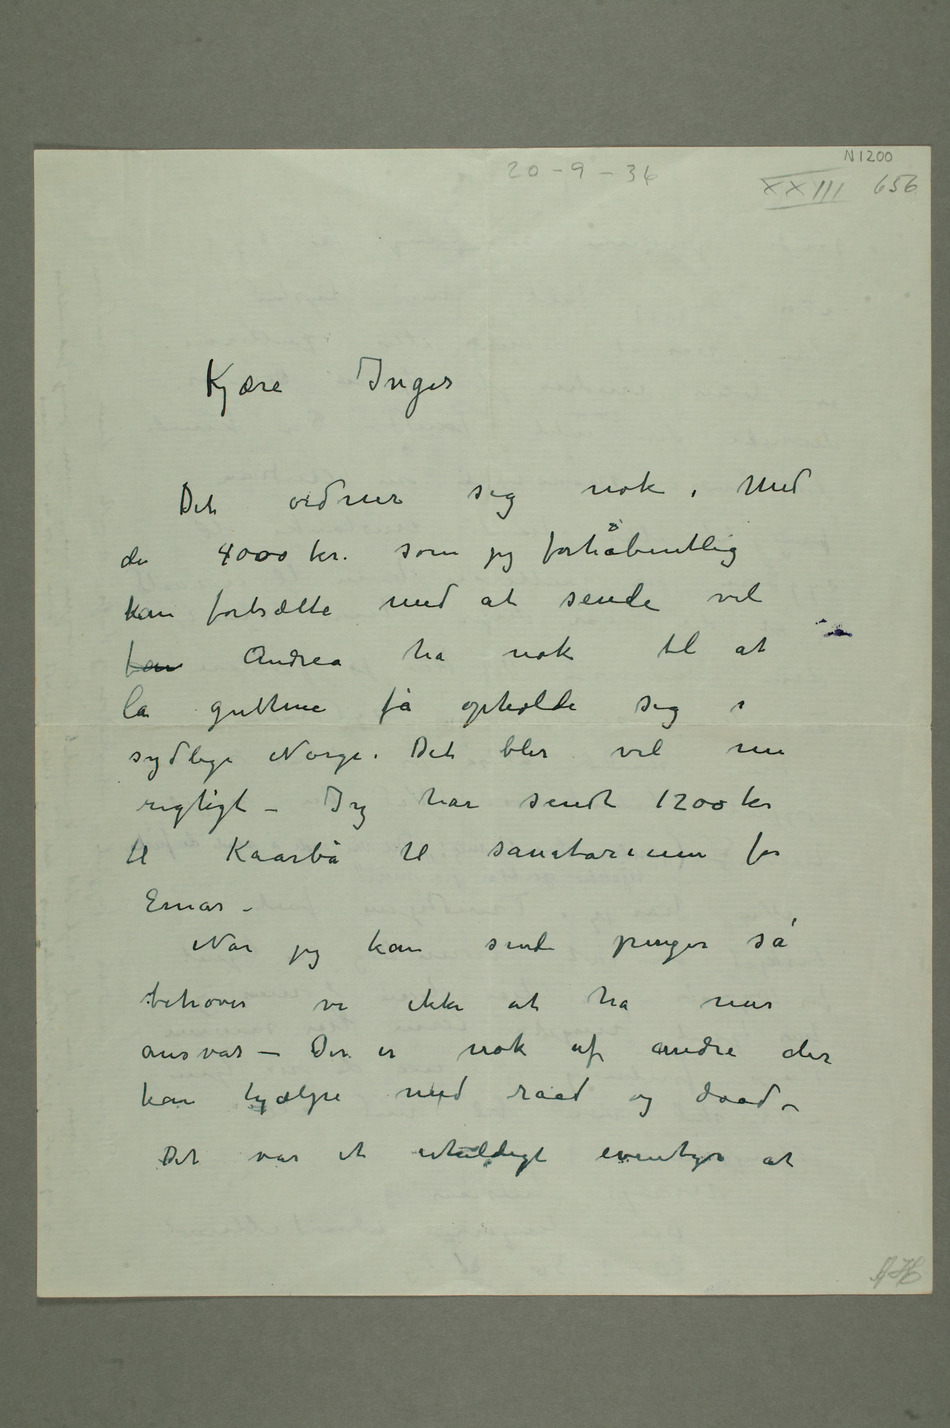 N 1200
20-9-34
XXIII 656
Kjære Inger
Det ordner sig nok. Med
de 4000 kr. som jeg forhåbentlig
kan fortsætte med at sende vel
fan Andrea ha nok til at
la guttene få opholde sig i
sydlige Norge. Det bler vel nu
rigtigt – Jeg har sendt 1200 kr
til Kaarbø til sanatorium for
Einar –
Når jeg kan sende penger så
behøver vi ikke at ha mer
ansvar – Der er nok af andre der
kan hjælpe med raad og daad –
Det var et uheldigt eventyr at